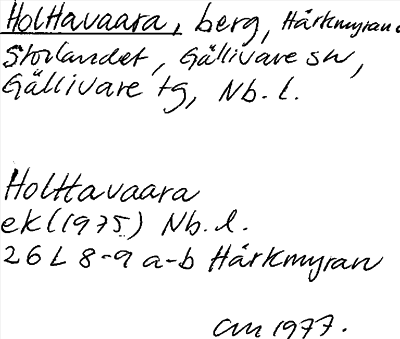 Holttavaara, berg, Härkmyran
Storlandet, Gällivare sn,
Gällivare tg, Nb. l.
Holttavaara
ek (1975) Nb. l.
26 L 8-9 a-b Härkmyran
cm 1977.